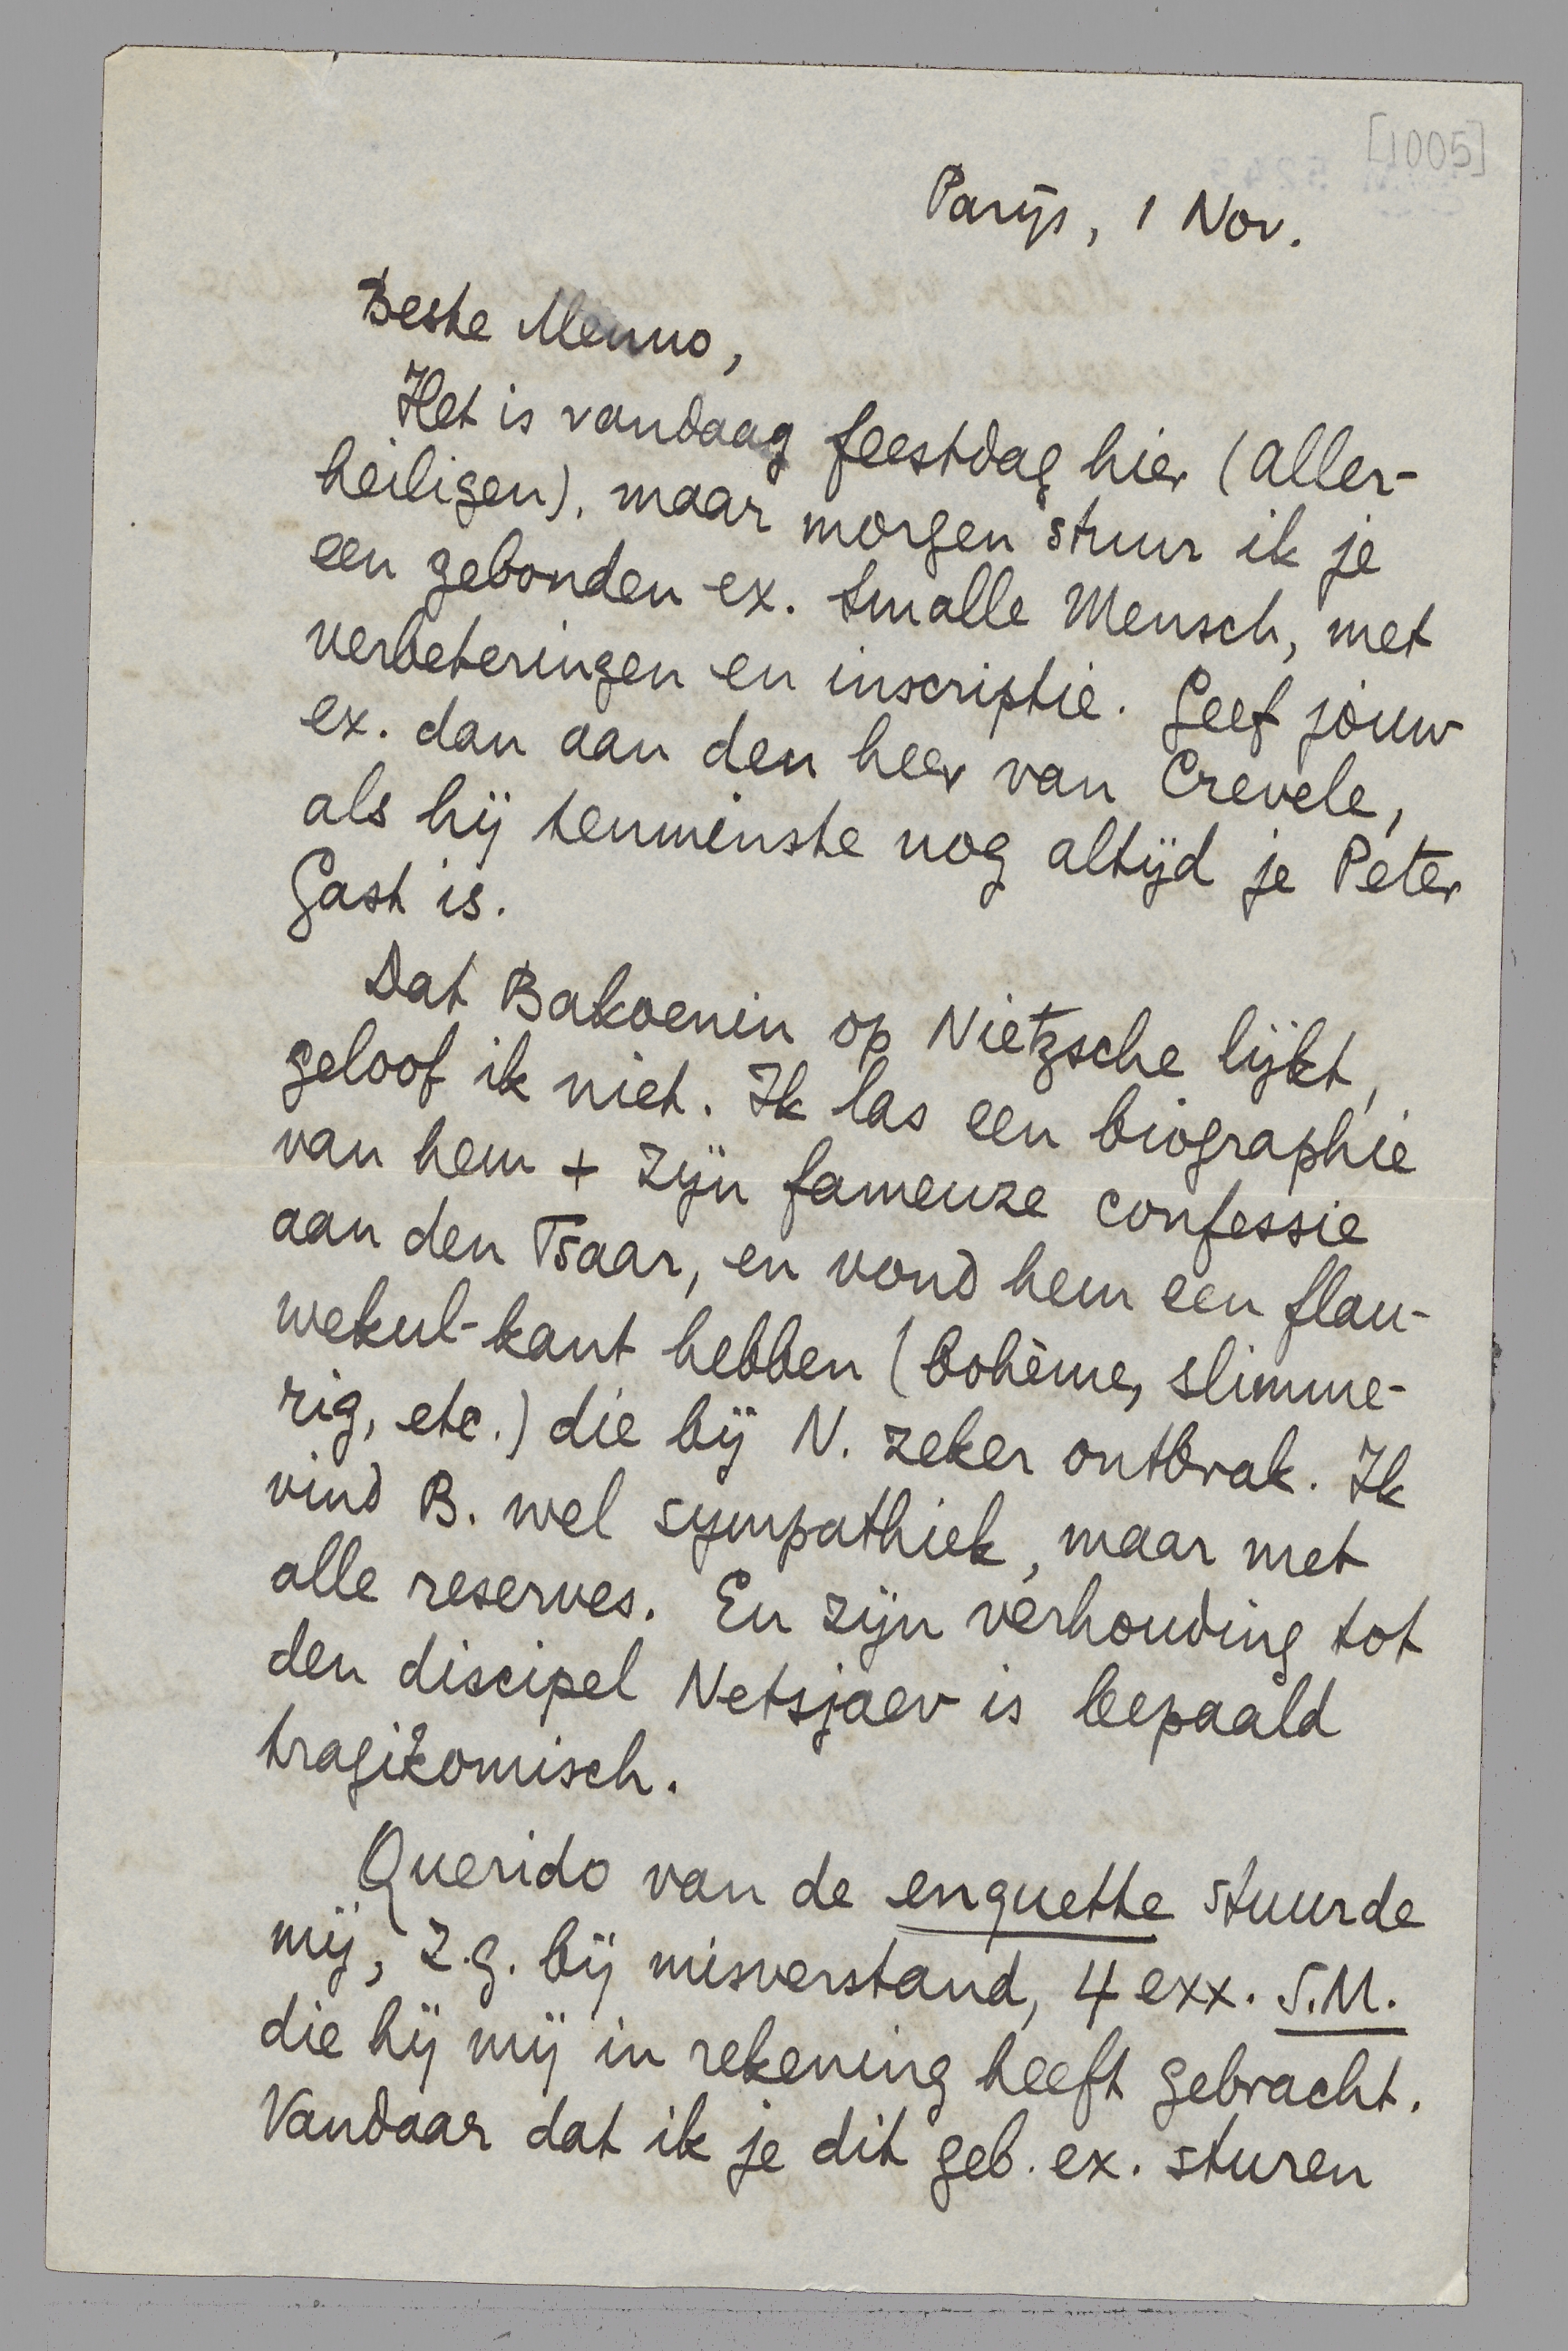 [1005]
Parijs, 1 Nov.
Beste Menno,
Het is vandaag feestdag hier (aller-
heiligen), maar morgen stuur ik je
een gebonden ex. Smalle Mensch, met
verbeteringen en inscriptie. Geef jouw
ex. dan aan den heer van Crevele,
als hij tenminste nog altijd je Peter
Gast is.
Dat Bakoenin op Nietzsche lijkt,
geloof ik niet. Ik las een biographie
van hem + zijn fameuze confessie
aan den Tsaar, en vond hem een flau-
wekul-kant hebben (bohème, slimme-
rig, etc.) die bij N. zeker ontbrak. Ik
vind B. wel sympathiek, maar met
alle reserves. En zijn verhouding tot
den discipel Netsjaev is bepaald
tragikomisch.
Querido van de enquette stuurde
mij, z.g. bij misverstand, 4 exx. S.M.
die hij mij in rekening heeft gebracht.
Vandaar dat ik je dit geb. ex. sturen